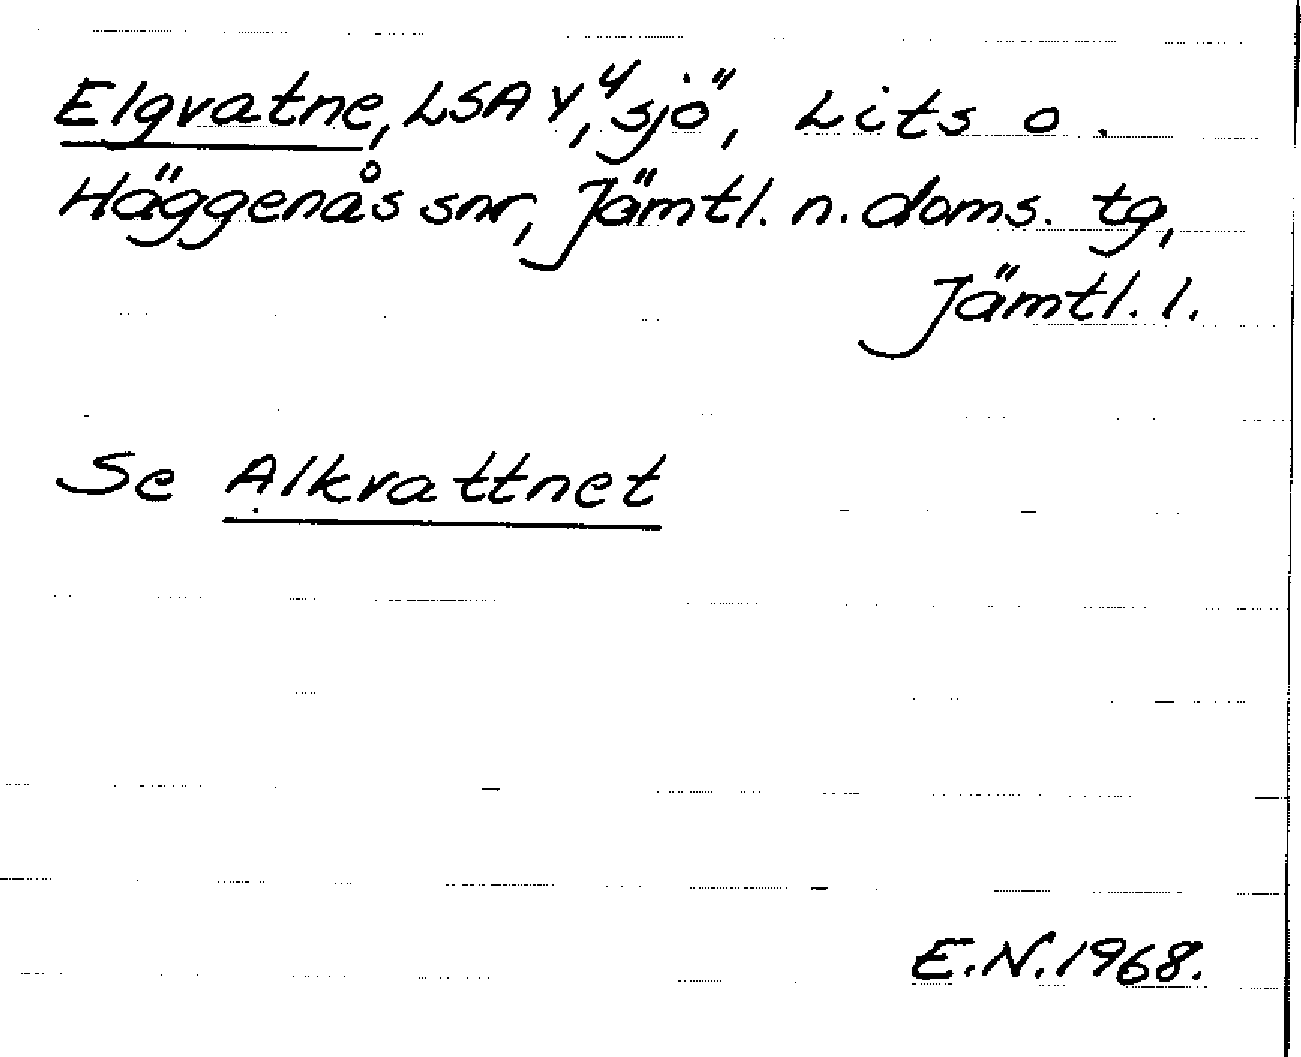 Elgvatne, LSA Y,4 sjö, Lits o.
Häggenås snr, Jämtl. n. doms. tg,
Jämtl. l.
Se Alkvattnet
E.N. 1968.